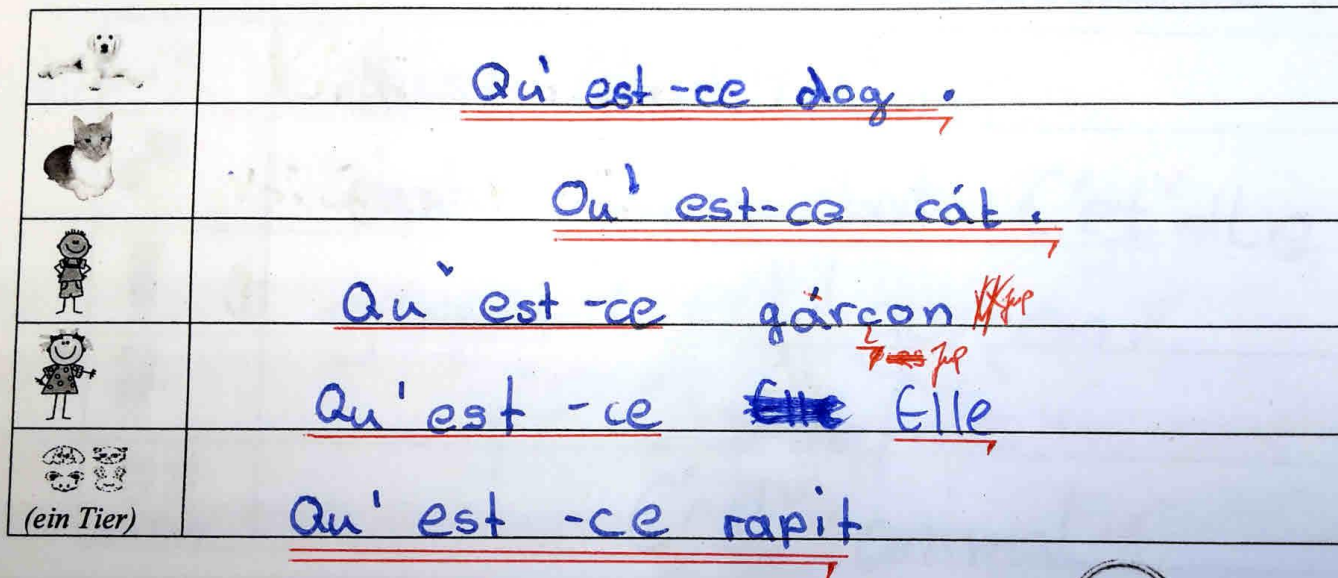 Qu' est-ce dog .
Qu' est-ce cát .
Qu' est-ce gárçon
Qu' est-ce Elle
(ein Tier)
Qu' est-ce rapit